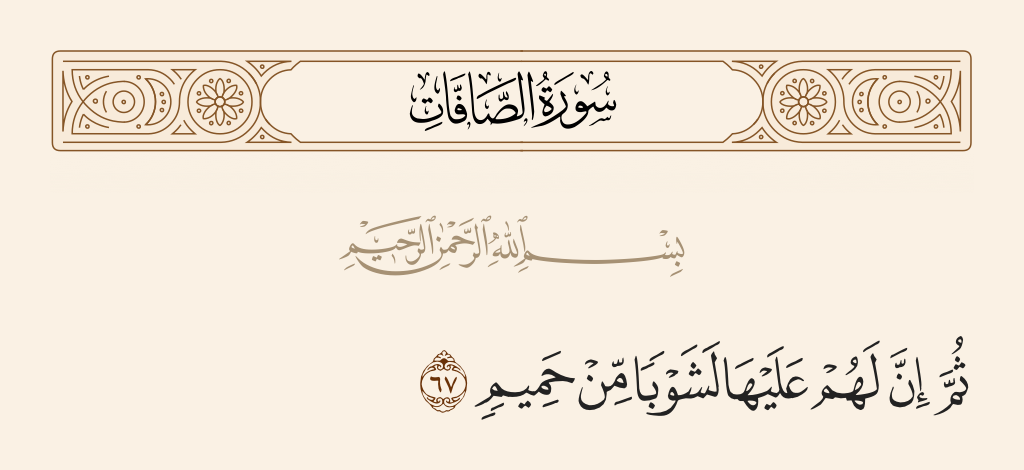 سُورَةُ الصَّافَّاتِ
بِسْمِ ٱللَّهِ ٱلرَّحْمَٰنِ ٱلرَّحِيمِ
ثُمَّ إِنَّ لَهُمْ عَلَيْهَا لَشَوْبًا مِّنْ حَمِيمٍ ٦٧